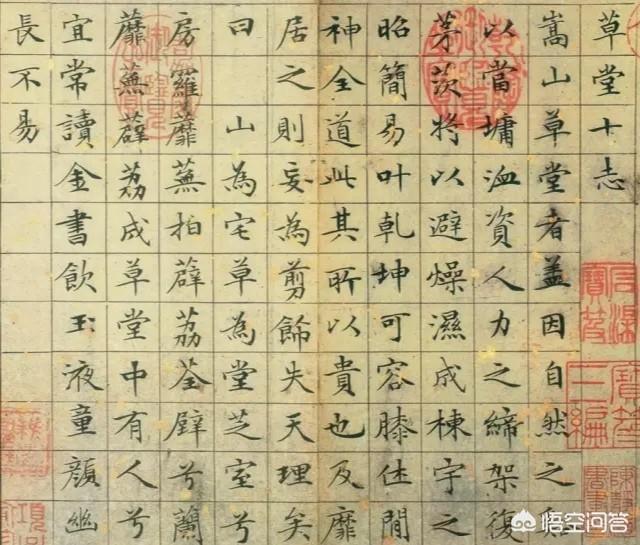 草堂十志
嵩山草堂者盖因自然之
以當墉洫資人力之締架復
茅茨将以避燥濕成棟宇之
昭簡易叶乾坤可容膝休閒
神全道此其所以貴也及靡
居之則妄為剪飾失天理矣
曰 山為宅草為堂芝室兮
房羅蘼蕪拍薜荔荃壁兮蘭
蘼蕪薜荔成草堂中有人兮
宜常讀金書飲玉液童顏幽
長不易
悟空问答